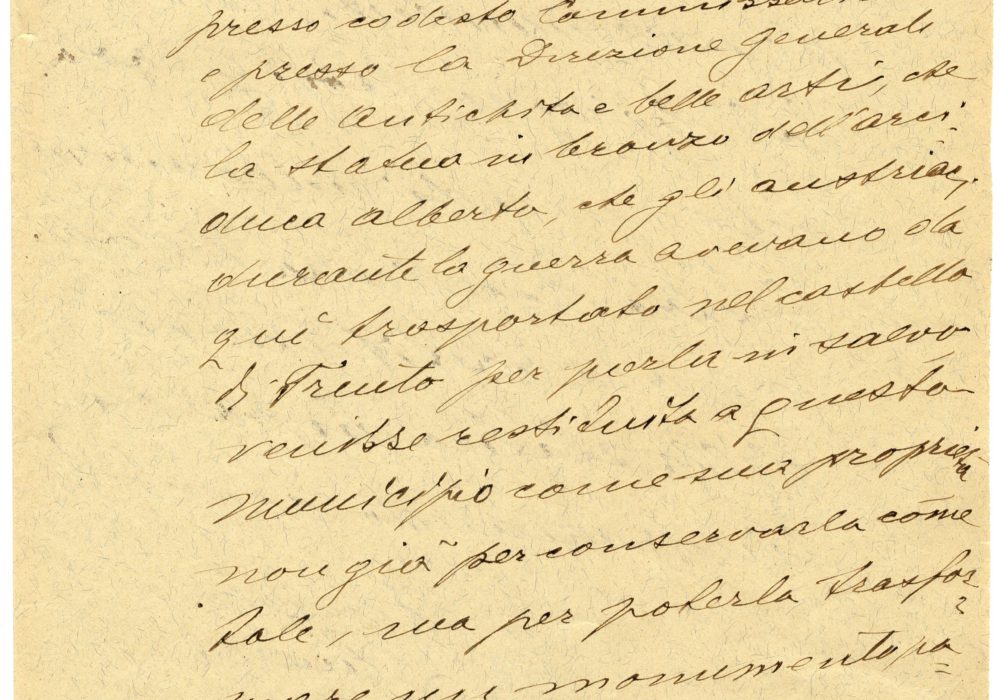 presso codesto Commissari
e presso la Direzione Generale
delle Antichità e belle arti, che
la statua in bronzo dell'arci-
duca Alberto, che gli austriaci,
durante la guerra avevano da
qui trasportato nel castello
di Trento per porla in salvo
venisse restituita a questo
municipio come sua proprietà
non già per conservarla come
tale, ma per poterla trasfor=
mare in un monumento pa=